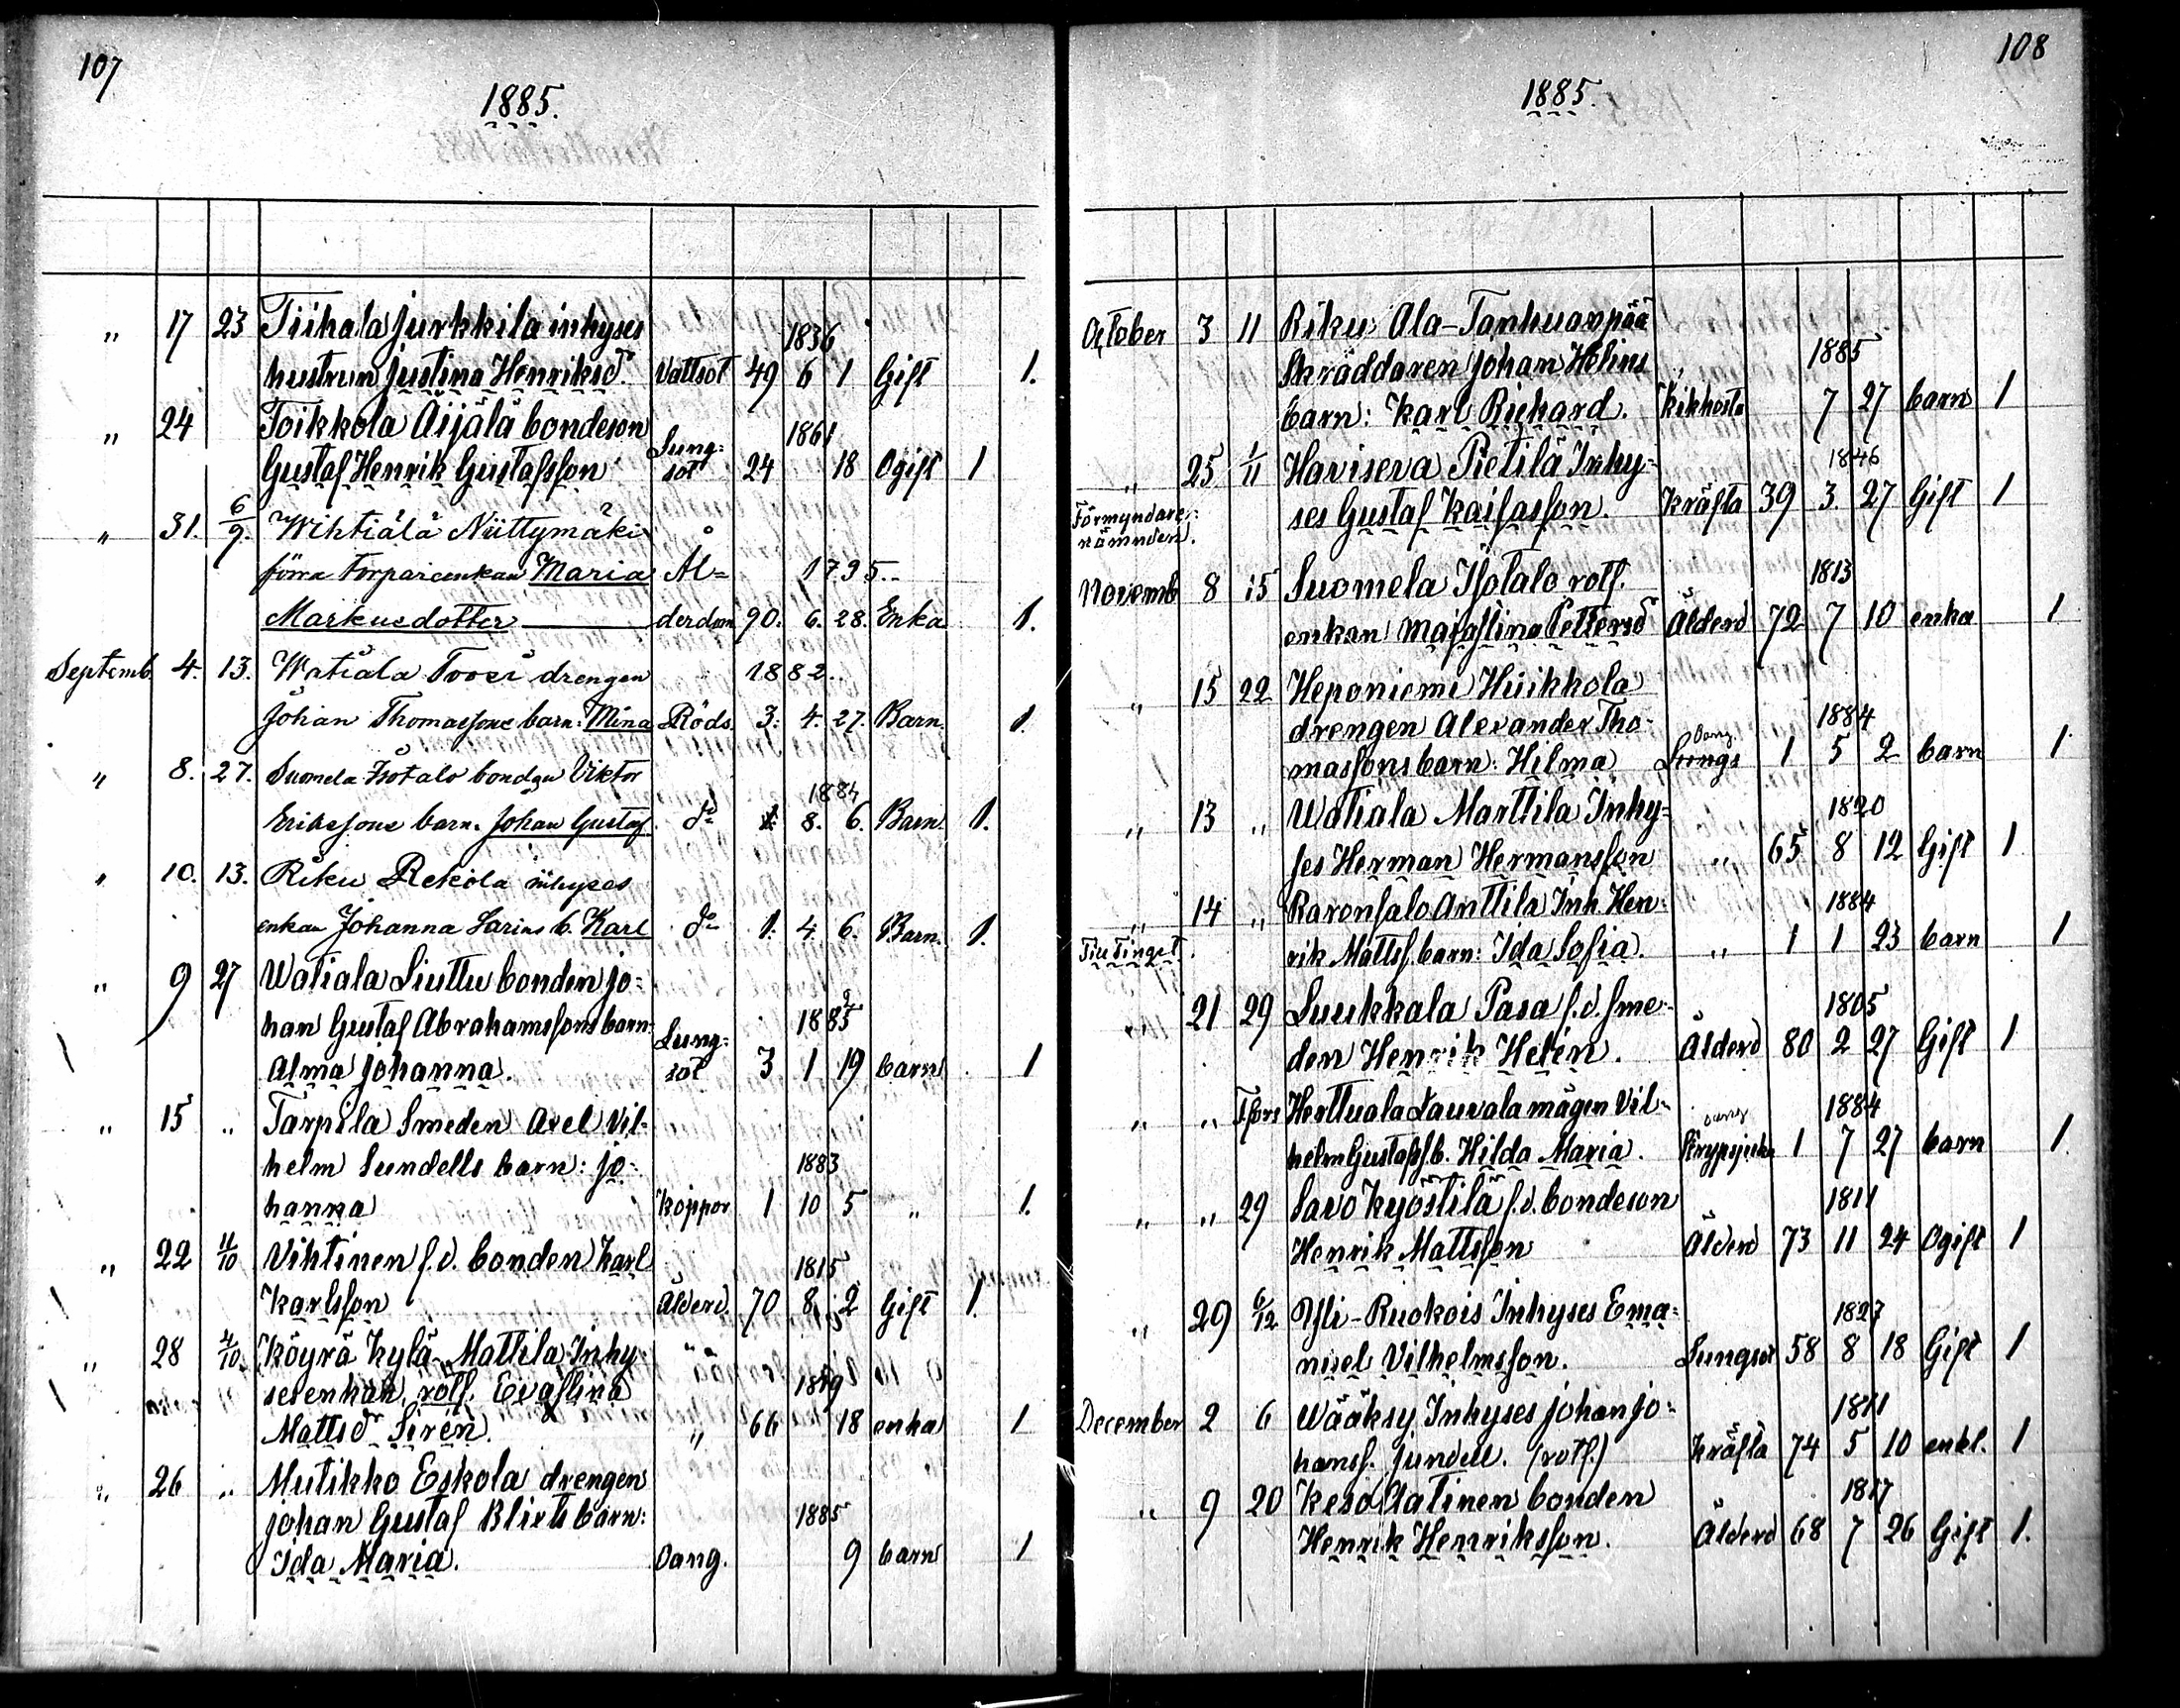 107
1885.
" 17 23 Tiihala Jurkkila inhyses 1836
hustrun Justina Henriksd. Vattsot 49 6 1 Gift 1.
" 24 Toikkola Äijälä bondeson 1861
Gustaf Henrik Gustafsson Lungsot 24 18 Ogift 1
" 31. 6/9. Wihtiälä Niittymäki
förra torpareenkan Maria Ål= 1795.
Markusdotter derdom 90. 6. 28. Enka 1.
Septemb. 4. 13. Watiala Toosi drengen 1882.
Johan Thomassons barn: Mina Röds. 3. 4. 27. Barn. 1.
" 8. 27. Suomela Isotalo bonden Viktor 1884
Erikssons barn. Johan Gustaf do 1. 8. 6. Barn. 1.
" 10. 13. Riku Rekola inhyses
enkan Johanna Sarins b. Karl do 1. 4. 6. Barn. 1.
" 9 27 Watiala Liuttu bonden Jo=
han Gustaf Abrahamssons barn 1882
Alma Johanna. Lungsot 3 1 19 barn 1
" 15 " Tarpila Smeden Axel Vil=
helm Sundells barn: Jo= 1883
hanna Koppor 1 10 5 " 1.
" 22 11/10 Vihtinen f.d. bonden Karl 1815
Karlsson Ålderd. 70 8 2 Gift 1
" 28 4/10. Köyrä Kylä-Mattila Inhy= "
sesenkan, rotf. Evastina 1819
Mattsdr Sirén. " 66 18 enka 1
" 26 " Mutikko Eskola drengen
Johan Gustaf Blixts barn: 1885
Ida Maria. Oang. 9 barn 1
108
1885.
October 3 11 Riku Ala-Tanhuanpää
Skräddaren Johan Helins 1885
barn: Karl Richard. Kikhosta 7 27 barn 1
" 25 1/11 Haviseva Pietilä Inhy= 1846
ses Gustaf Kaisasson. Kräfta 39 3. 27 Gift 1
Förmyndare=
nämnden.
Novemb 8 15 Suomela Isotalo rotf. 1813
enkan Majastina Pettersd Ålderd 72 7 10 enka 1
" 15 22 Heponiemi Huikkola
drengen Alexander Tho= 1884
massons barn: Hilma Oang. Lungs 1 5 2 barn 1
" 13 " Watiala Marttila Inhy= 1820
ses Herman Hermansson " 65 8 12 Gift 1
" 14 " Raronsalo Anttila Inh. Hen= 1884
rik Mattss. barn: Ida Sofia. " 1 1 23 barn 1
Till Tinget.
21 29 Luukkala Pasa f.d. sme= 1805
den Henrik Helén. Ålderd 80 2 27 Gift 1
" " Tfors Herttuala Lauvala mågen Vil= 1884
helm Gustafss b. Hilda Maria. oang. Strypsjuka 1 7 27 barn 1.
" " 29 Savo Kyöstilä f.d. bondeson 1811
Henrik Mattsson Ålderd 73 11 24 Ogift 1
" 29 6/12 Yli-Ruokois Inhyses Ema= 1827
nuel Vilhelmsson. Lungsot 58 8 18 Gift 1
December 2 6 Wääksy Inhyses Johan Jo= 1811
hanss. Jundell. (rotf.) Kräfta 74 5 10 enkl. 1
" 9 20 Keso Aatinen bonden 1817
Henrik Henriksson. Ålderd 68 7 26 Gift 1.